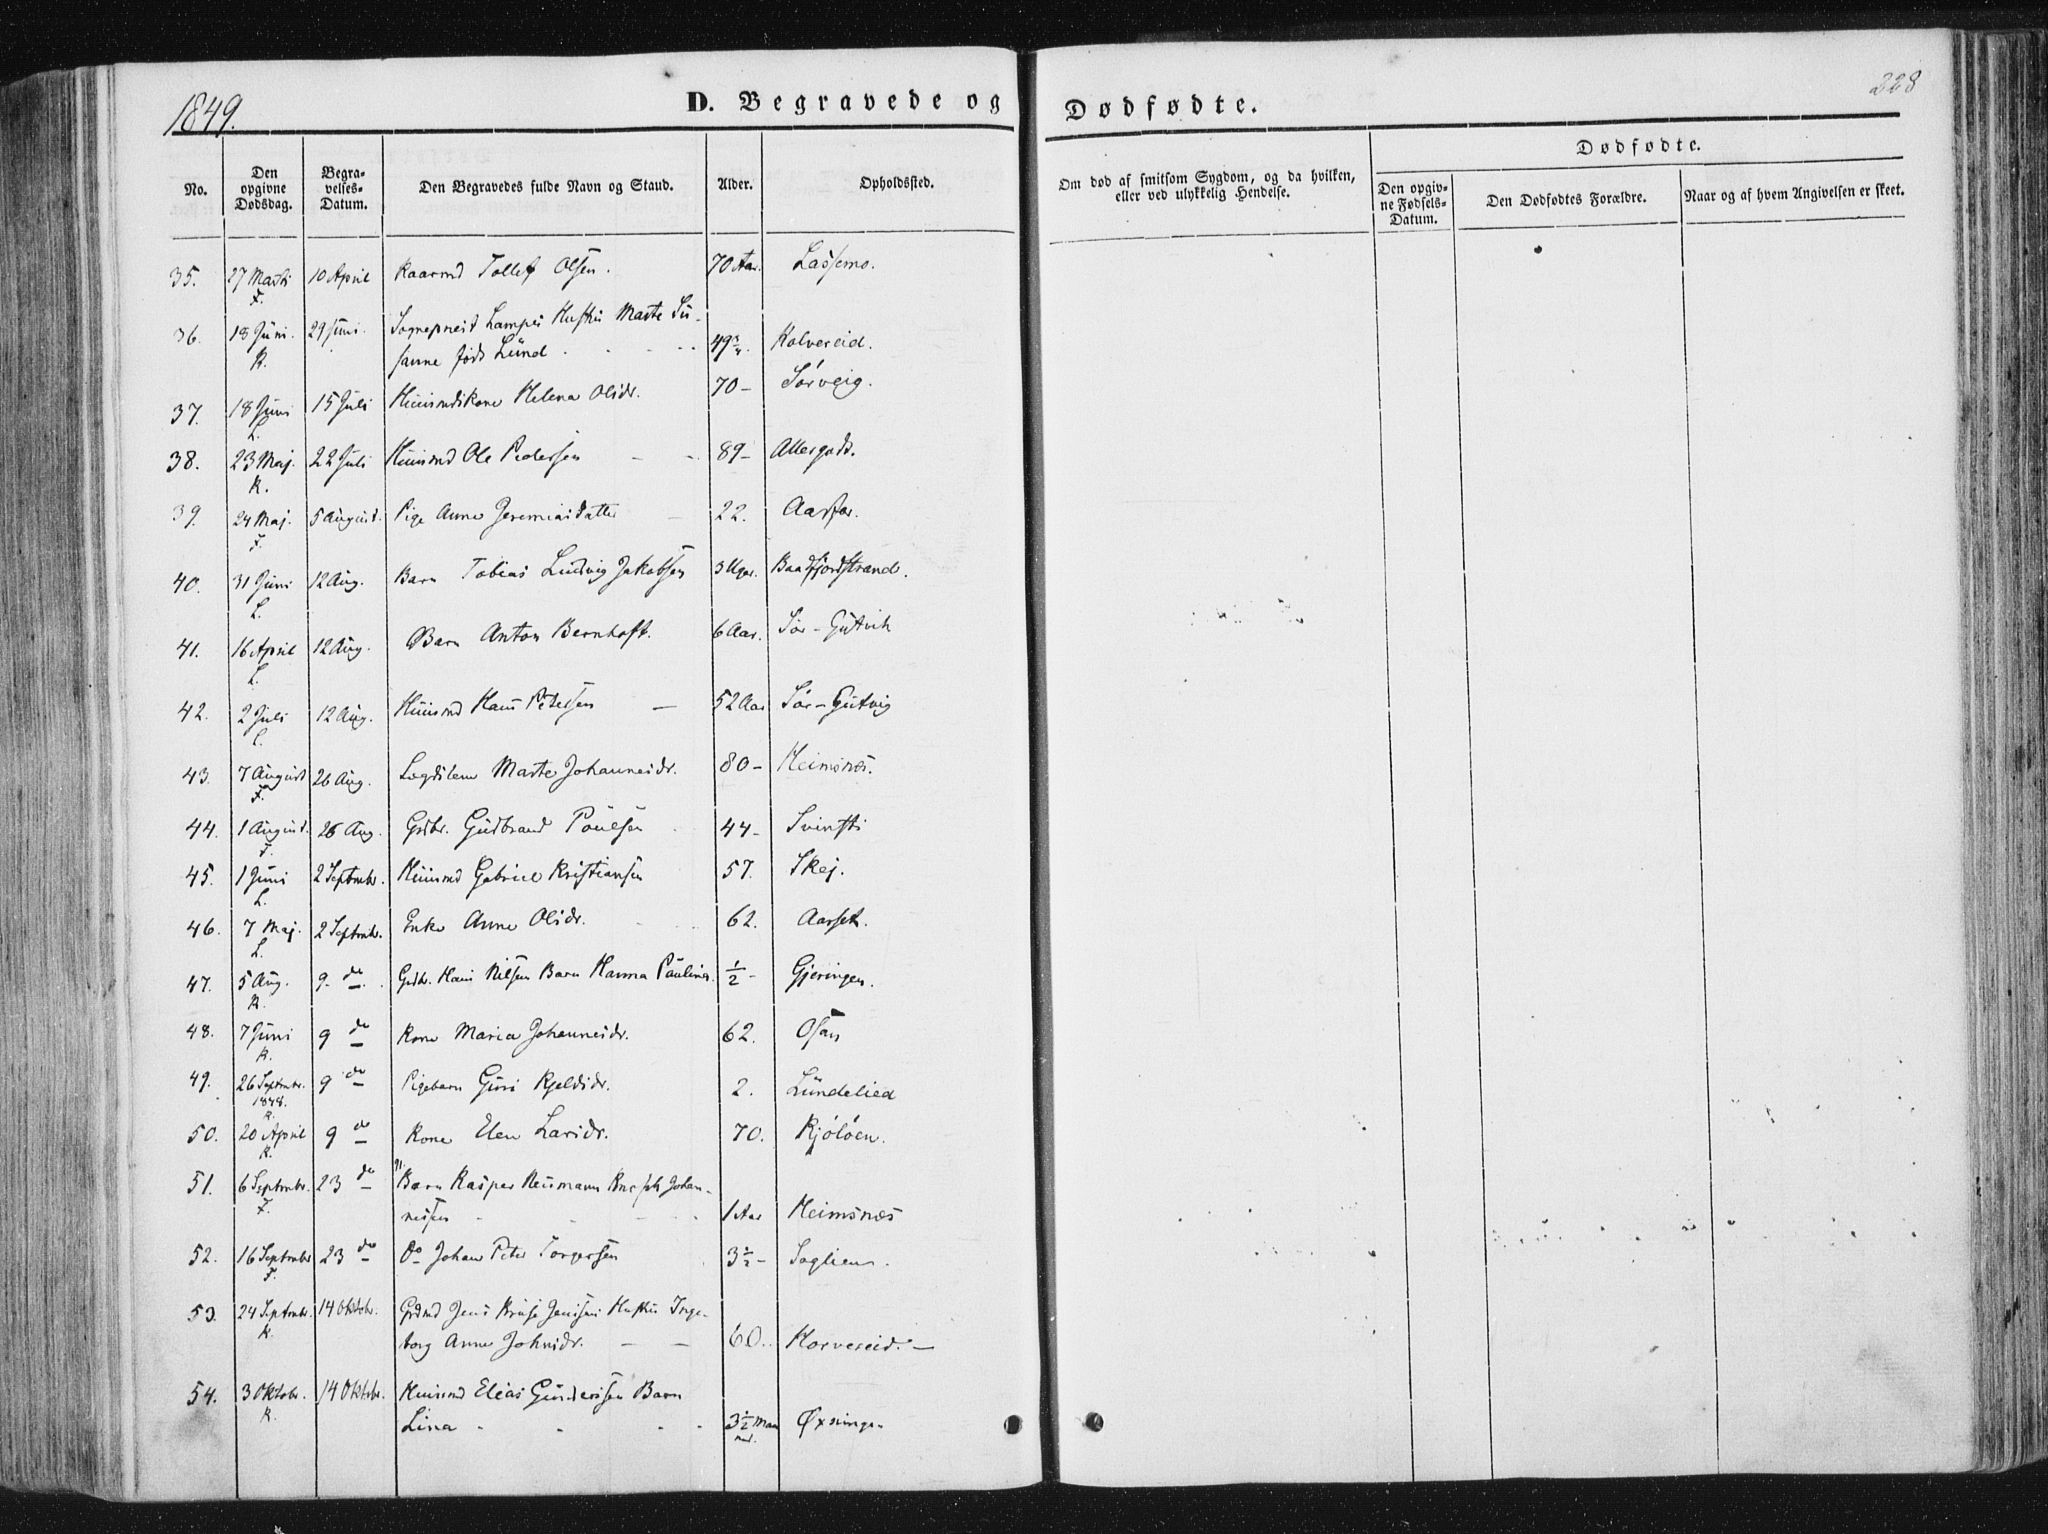 1849.
D. Begravede og Dødfødte.
228
No.
Den opgivne Dødsdag.
Begravelses-Datum.
Den Begravedes fulde Navn og Stand.
Alder.
Opholdssted.
Om død af smitsom Sygdom, og da hvilken, eller ved ulykkelig Hendelse.
Dødfødte.
Den opgivne Fødsels-Datum.
Den Dødfødtes Forældre.
Naar og af hvem Angivelsen er skeet.
35. 27 Marts F. 10 April Kaarmd Tollef Olsen. 70 Aar. Lassemo.
36. 18 Juni. K. 29 Juni. Sognepræst Lampes Hustru Marte Su-
sanne føds Lund 49 3/4. Kolvereid.
37. 18 Juni L. 15 Juli Huusmdskone Helena Olsdr. 70 – Sørveig.
38. 23 Maj. K. 22 Juli Huusmd Ole Pedersen 89 –
39. 24 Maj. F. 5 August. Pige Anne Jeremiasdatter 22. Aarfor.
40. 31 Juni L. 12 Aug. Barn Tobias Ludvig Jakobsen 3 Uger. Baadfjordstrand.
41. 16 April L. 12 Aug. Barn Anton Bernhoft. 6 Aar. Sør-Gutvik
42. 2 Juli L. 12 Aug. Huusmd Hans Petersen 52 Aar Sør-Gutvig
43. 7 August F. 26 Aug. Logdslem Marte Johannesdr. 80 – Heimsnæs.
44. 1 August. F. 26 Aug. Grdbr. Gudbrand Poulsen 44 –
45. 1 Juni L. 2 Septembr. Huusmd Gabriel Kristiansen 57. Skej.
46. 7 Maj. L. 2 Septembr. Enke Anne Olsdr. 62. Aarset.
47. 5 Aug. K. 9 do Grdbr. Hans Nilsen Barn Hanna Pauline. 1/2 – Gjeringen.
48. 7 Juni K. 9 do Kone Maria Johannesdr. 62. Osan
49. 26 Septembr. 1848. K. 9 do Pigebarn Guri Kjeldsdr. 2. Lundelied
50. 20 April K. 9 do Kone Elen Larsdr. 70. Kjøløen.
51. 6 Septembr. F. 23 do Barn Kasper Neumann Johan-
nessen 1 Aar Heimsnæs
52. 16 Septembr F. 23 do Do Johan Peter Torgersen 3 1/2 – Soglien.
53. 24 Septembr. K. 14 Oktobr. Grdmd Jens Kruse Jensens Hustru Inge-
borg Anne Johnsdr. 60. Horvereid. –
54. 3 Oktobr. K. 14 Oktobr. Huusmd Elias Gundersen Barn
Lina 3 1/2 Maaneder. Øxningen